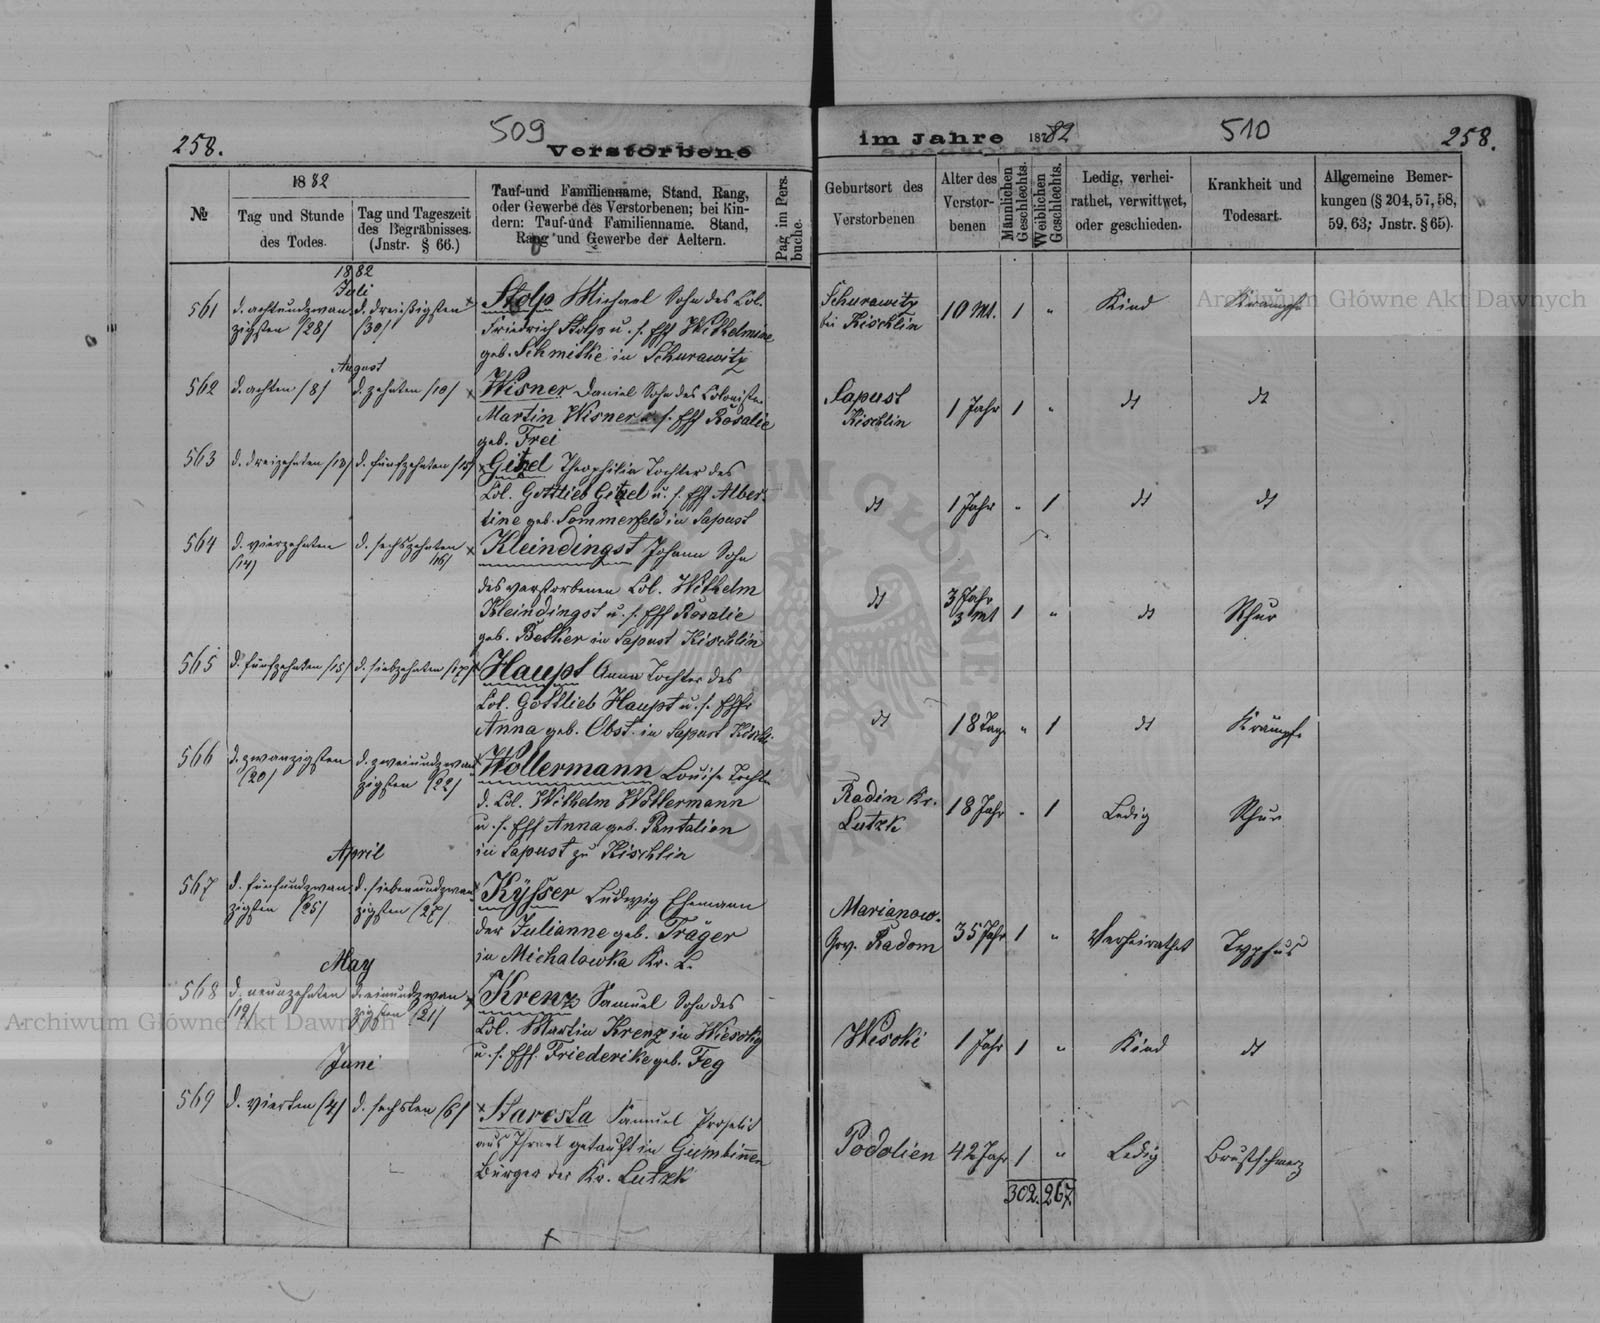 258.
509
Verstorbene
im Jahre 1882
510
258.
№
1882
Tag und Stunde des Todes.
Tag und Tageszeit des Begräbnisses. (Jnstr. § 66.)
Tauf-und Familienname, Stand, Rang, oder Gewerbe des Verstorbenen; bei Kindern: Tauf-und Familienname. Stand, Rang und Gewerbe der Aeltern.
Pag im Pers. buche.
Geburtsort des Verstorbenen
Alter des Verstorbenen
Männlichen Geschlechts.
Weiblichen Geschlechts.
Ledig, verheirathet, verwittwet, oder geschieden.
Krankheit und Todesart.
Allgemeine Bemerkungen (§ 204, 57, 58, 59, 63; Jnstr. § 65).
1882
Juli
561 d. achtundzwan d. dreißigsten × Stolp Michael Sohn des Col. Schurawitz 10 Mt. 1 " Kind Krämpfe
zigsten /28/ /30/ Friedrich Stolp u. s. Eff Wilhelmine bei Kischlin
geb. Schmitke in Schurawitz
August
562 d. achten /8/ d. zehnten /10/ × Wisner Daniel Sohn des Coloniste. Sapust 1 Jahr 1 " dt dt
Martin Wisner u. s. Eff Rosalie Kischlin
geb. Frei
563 d. dreizehnten /13/ d. fünfzehnten /15/ × Gitzel Theophilia Tochter des
Col. Gottlieb Gitzel u. s. Eff Alber- dt 1 Jahr " 1 dt dt
tine geb. Sommerfeld in Sapust
564 d. vierzehnten d. sechszehnten × Kleindingst Johann Sohn
/14/ /16/
des verstorbenen Col. Wilhelm dt 3 Jahr
Kleindingst u. s. Eff Rosalie 3 Mt 1 " dt Rhur
geb. Betker in Sapust Kischlin
565 d. fünfzehnten /15/ d. siebzehnten /17/ × Haupt Anna Tochter des
Col. Gottlieb Haupt u. s. Eff. dt 18 Tage " 1 dt Krämpfe
Anna geb. Obst. in Sapust Kischli
566 d. zwanzigsten d. zweiundzwan × Wollermann Louise Tochter
/20/ zigsten /22/
d. Col. Wilhelm Wollermann Radin Kr. 18 Jahr " 1 Ledig Rhur
u. s. Eff Anna geb. Pantalion Lutzk
in Sapust zu Kischlin
April
567 d. fünfundzwan d. siebenundzwan × Kysser Ludwig Ehemann
zigsten /25/ zigsten /27/ der Julianne geb. Träger Marianow. 35 Jahr 1 " Verheirathet Typfus
in Michalowka Kr. L. Gov. Radom
May
568 d. neunzehnten d. einundzwan × Krenz Samuel Sohn des
/19/ zigsten /21/ Col. Martin Krenz in Wiesoky Wisoki 1 Jahr 1 " Kind dt
u. s. Eff. Friederike geb. Feg
Juni
569 d. vierten /4/ d. sechsten /6/ × Starosta Samuel Proselit
aus Israel getauft in Gumbinnen Podolien 42 Jahr 1 " Ledig Brustschmerz
Bürger der Kr. Lutzk
302. 267
×
Archiwum Główne Akt Dawnych
Archiwum Główne Akt Dawnych